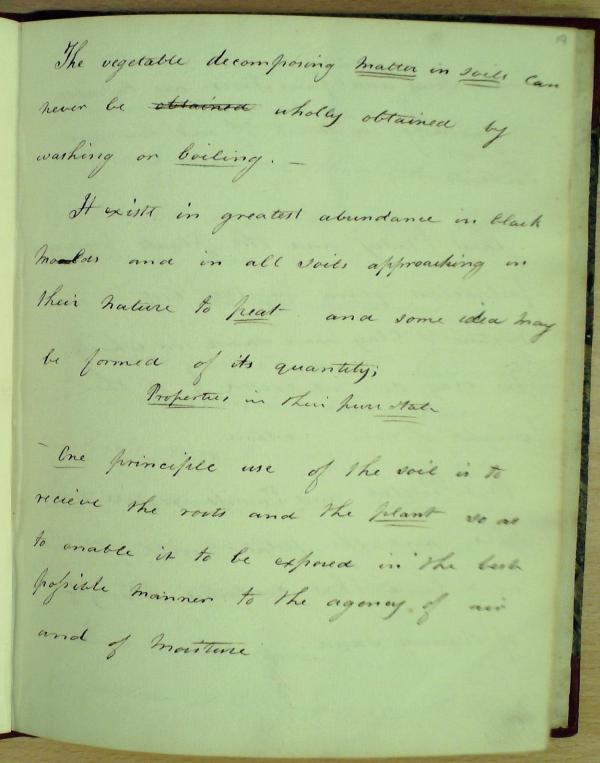 The vegetable decomposing matter in soils can
never be obtained wholly obtained by
washing or boiling. –
It exists in greatest abundance in black
moulds and in all soils approaching in
their nature to peat and some idea may
be formed of its quantity;
Properties in their pure state
– One principle use of the soil is to
recieve the roots and the plant so as
to enable it to be exposed in the best
possible manner to the agency of air
and of moisture